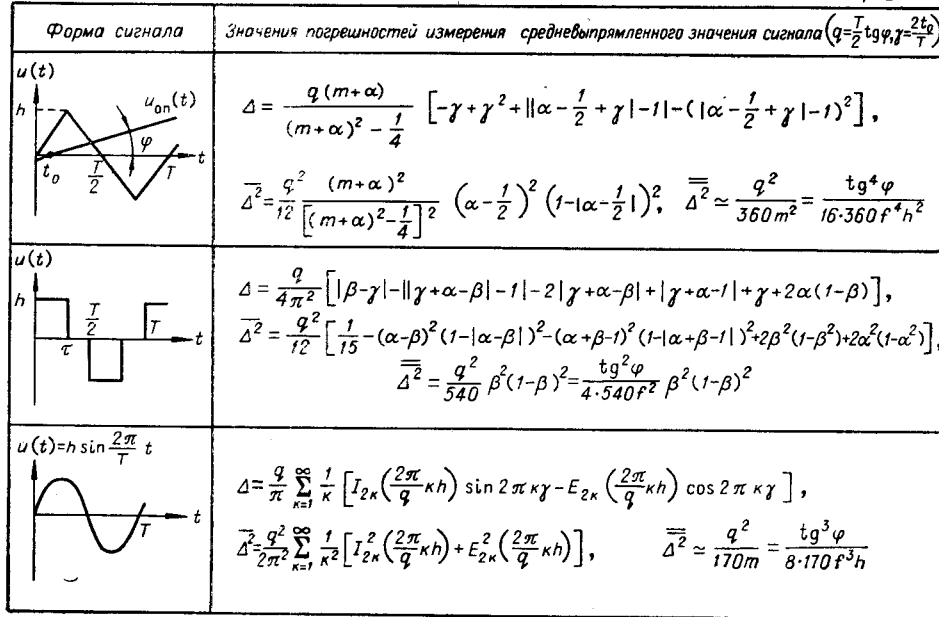 Форма сигнала
Значения погрешностей измерения средневыпрямленного значения сигнала (q=T/2 tgφ, γ=2t₀/T)
u(t)
h
u_оп(t)
φ
t₀
T/2
T
t
Δ = q(m+α)/((m+α)² − 1/4) [−γ+γ²+||α−1/2+γ|−1|−(|α−1/2+γ|−1)²],
Δ̅²̅ = q²/12 (m+α)²/[(m+α)²−1/4]² (α−1/2)² (1−|α−1/2|)², Δ̿²̿ ≃ q²/360m² = tg⁴φ/16·360f⁴h²
u(t)
h
T/2
T
τ
t
Δ = q/4π² [|β−γ|−||γ+α−β|−1|−2|γ+α−β|+|γ+α−1|+γ+2α(1−β)],
Δ̅²̅ = q²/12 [1/15−(α−β)²(1−|α−β|)²−(α+β−1)²(1−|α+β−1|)²+2β²(1−β²)+2α²(1−α²)],
Δ̿²̿ = q²/540 β²(1−β)² = tg²φ/4·540f² β²(1−β)²
u(t)=h sin 2π/T t
T
t
Δ = q/π ∑_{к=1}^{∞} 1/к [I₂ₖ(2π/q кh) sin 2πкγ − E₂ₖ(2π/q кh) cos 2πкγ],
Δ̅²̅ = q²/2π² ∑_{к=1}^{∞} 1/к² [I²₂ₖ(2π/q кh) + E²₂ₖ(2π/q кh)], Δ̿²̿ ≃ q²/170m = tg³φ/8·170f³h